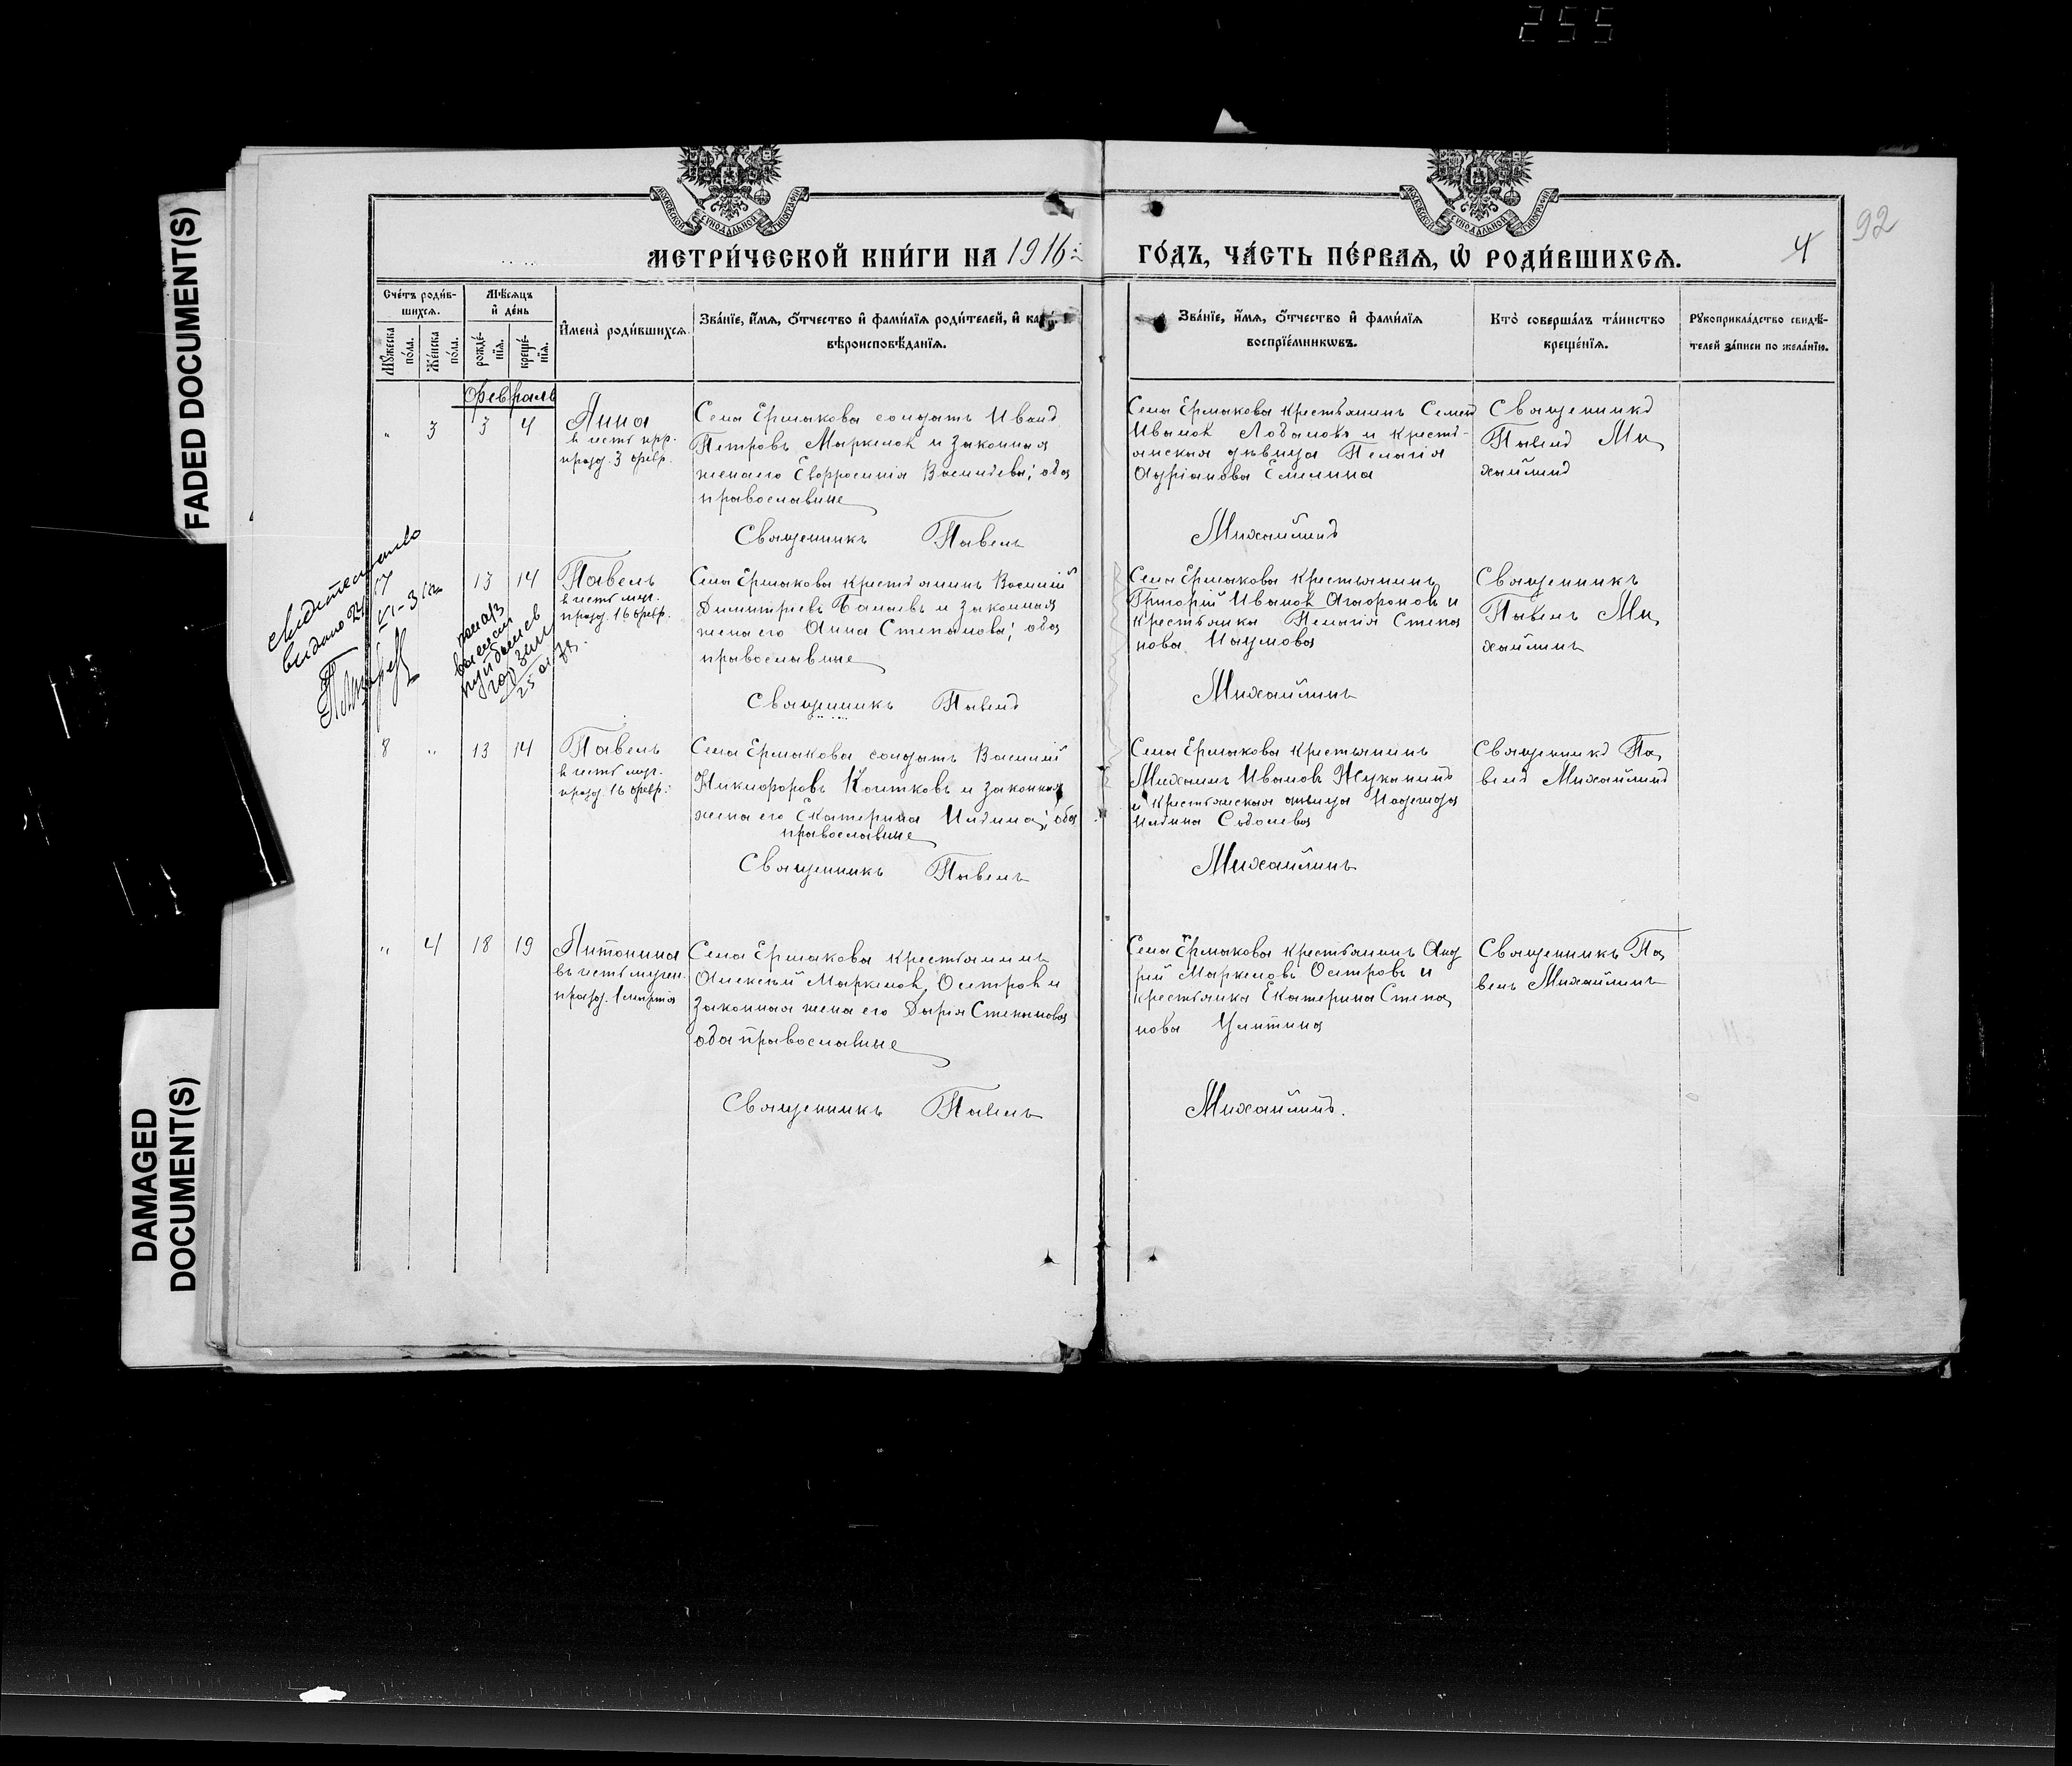 255
FADED DOCUMENT(S)
DAMAGED
DOCUMENT(S)
МОСКОВСКОЙ СѴНОДАЛЬНОЙ ТИПОГРАФІИ
МОСКОВСКОЙ СѴНОДАЛЬНОЙ ТИПОГРАФІИ
МЕТРИ́ЧЕСКОЙ КНИ́ГИ НА 1916
ГО́ДЪ, ЧА́СТЬ ПЕ́РВАѦ, Ѡ҆ РОДИ́ВШИХСѦ.
4
92
Сче́тъ роди́в-
шихсѧ.
Мѣ́сѧцъ
и҆ де́нь
Мꙋ́жеска
по́ла.
Же́нска
по́ла.
рожде́-
нїѧ.
креще́-
нїѧ.
И҆мена̀ роди́вшихсѧ.
Зва́нїе, и҆́мѧ, ѻ҆́тчество и҆ фами́лїѧ роди́телей, и҆
вѣроисповѣ́данїѧ.
Зва́нїе, и҆́мѧ, ѻ҆́тчество и҆ фами́лїѧ
воспрїе́мникѡвъ.
Кто̀ соверша́лъ та́инство
креще́нїѧ.
Рꙋкоприкла́дство свидѣ́-
телей за́писи по жела́нїю.
Февраль
„ 3 3 4
Анна
в честь прр.
празд. 3 февр.
Села Ермакова солдатъ Иванъ
Петровъ Маркеловъ и законная
жена его Евфросинія Васильева; оба
православные
Священникъ Павелъ
Села Ермакова крестьянинъ Семенъ
Ивановъ Лобановъ и кресть-
янская дѣвица Пелагія
Адріанова Емелина
Михайлинъ
Священникъ
Павелъ Ми-
хайлинъ
свидетельство
выдано
13 14
Павелъ
в честь муч.
празд. 16 февр.
Села Ермакова крестьянинъ Василій
Димитріевъ Балаевъ и законная
жена его Анна Степанова; оба
православные
Священникъ Павелъ
25 01 73.
Села Ермакова крестьянинъ
Григорій Ивановъ Агафоновъ и
крестьянка Пелагія Степа-
нова Наумова
Михайлинъ
Священникъ
Павелъ Ми-
хайлинъ
8 „ 13 14
Павелъ
в честь муч.
празд. 16 февр.
Села Ермакова солдатъ Василій
Никифоровъ Колтковъ и законная
жена его Екатерина Ильина; оба
православные
Священникъ Павелъ
Села Ермакова крестьянинъ
Михаилъ Ивановъ Жуканинъ
и крестьянская дѣвица Надежда
Ильина Соболева
Михайлинъ
Священникъ Па-
велъ Михайлинъ
„ 4 18 19
Антонина
въ честь мучен.
празд. 1 марта
Села Ермакова крестьянинъ
Алексѣй Маркеловъ Остров и
законная жена его Дарія Степанова
оба православные
Священникъ Павелъ
Села Ермакова крестьянинъ Анд-
рей Маркеловъ Островъ и
крестьянка Екатерина Степа-
нова
Михайлинъ.
Священникъ Па-
велъ Михайлинъ